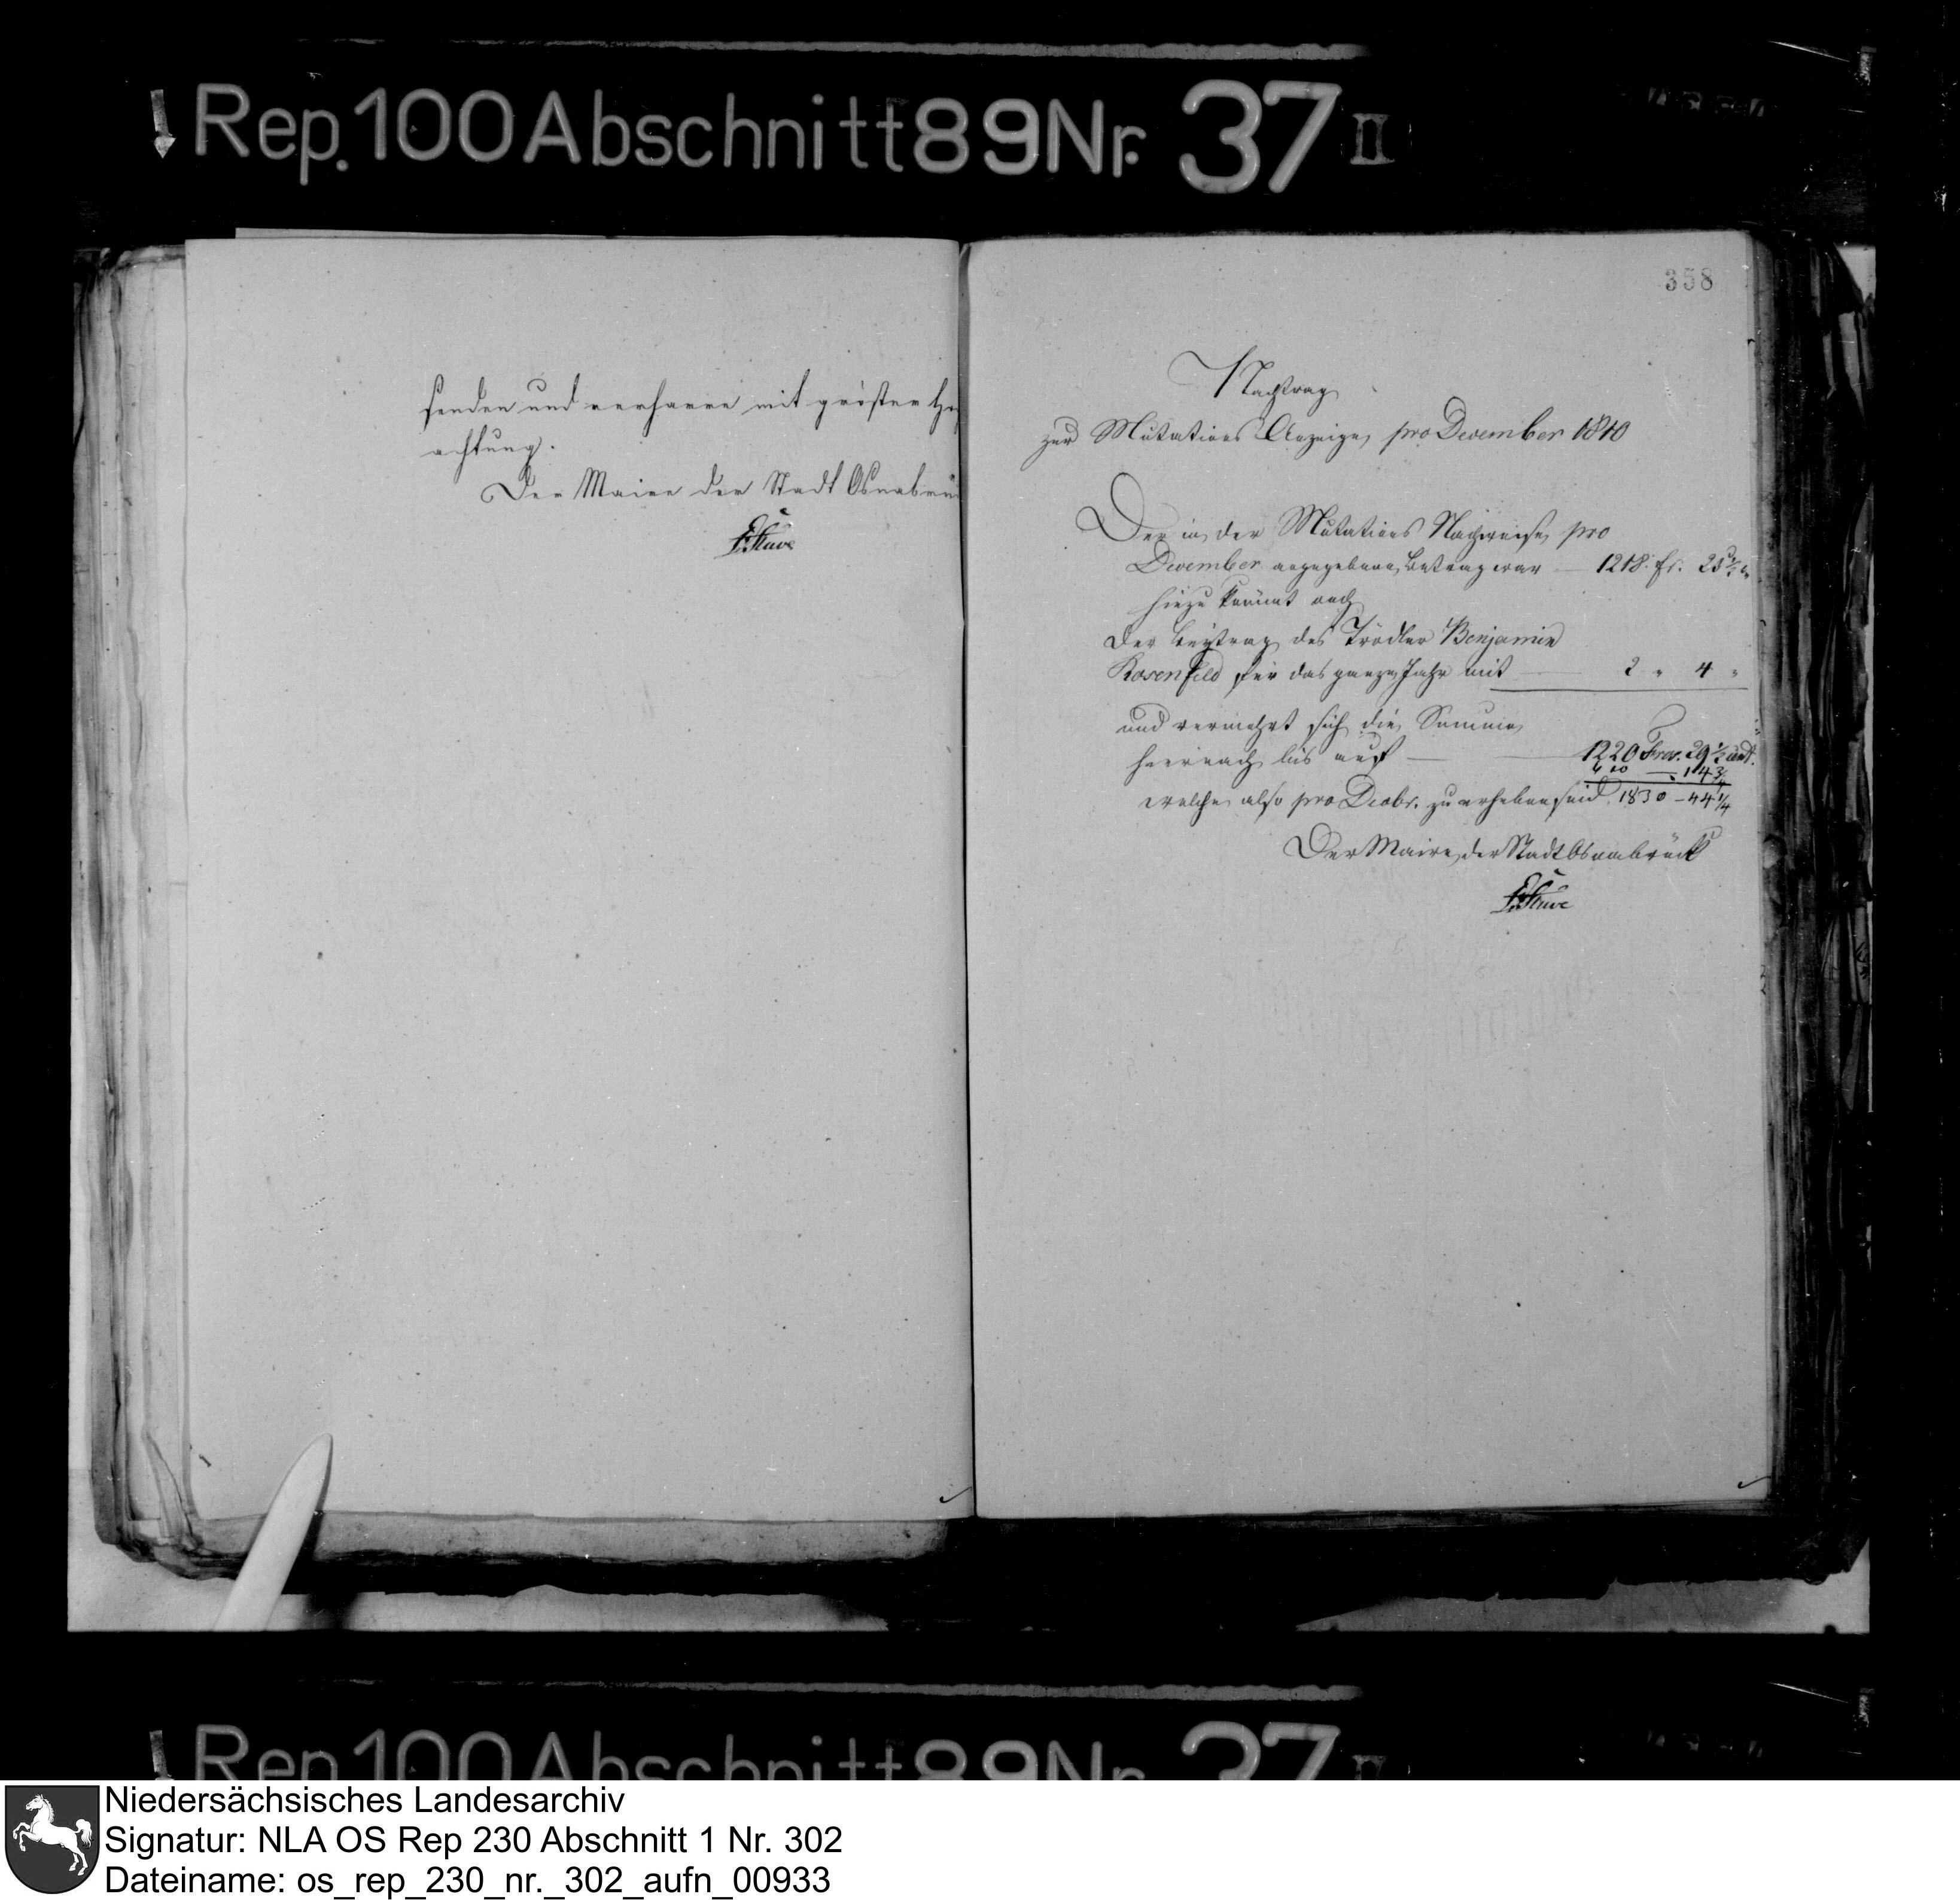 Rep. 100 Abschnitt 89 Nr. 37 II
senden und verharre mit größter Ho
achtung.
Der Maire der Stadt Osnabrü
Stüve
358
Nachtrag
zur Mutations Anzeige pro December 1810
Der in der Mutations Nachweise pro
December angegebene Betrag war — 1218 fr. 25 1/2
hiezu kommt noch
der Beytrag des Trödler Benjamin
Rosenfeld für das ganze Jahr mit — 2 " 4 "
und vermehrt sich die Summe
hiernach bis auf — 1220 Frcs. 29 1/2 Cent.
610 — 14 3/4
welche also pro Decbr. zu erheben sind 1830 – 44 1/4
Der Maire der Stadt Osnabrück
Stüve
Rep. 100 Abschnitt 89 Nr. 37 II
Niedersächsisches Landesarchiv
Signatur: NLA OS Rep 230 Abschnitt 1 Nr. 302
Dateiname: os_rep_230_nr._302_aufn_00933